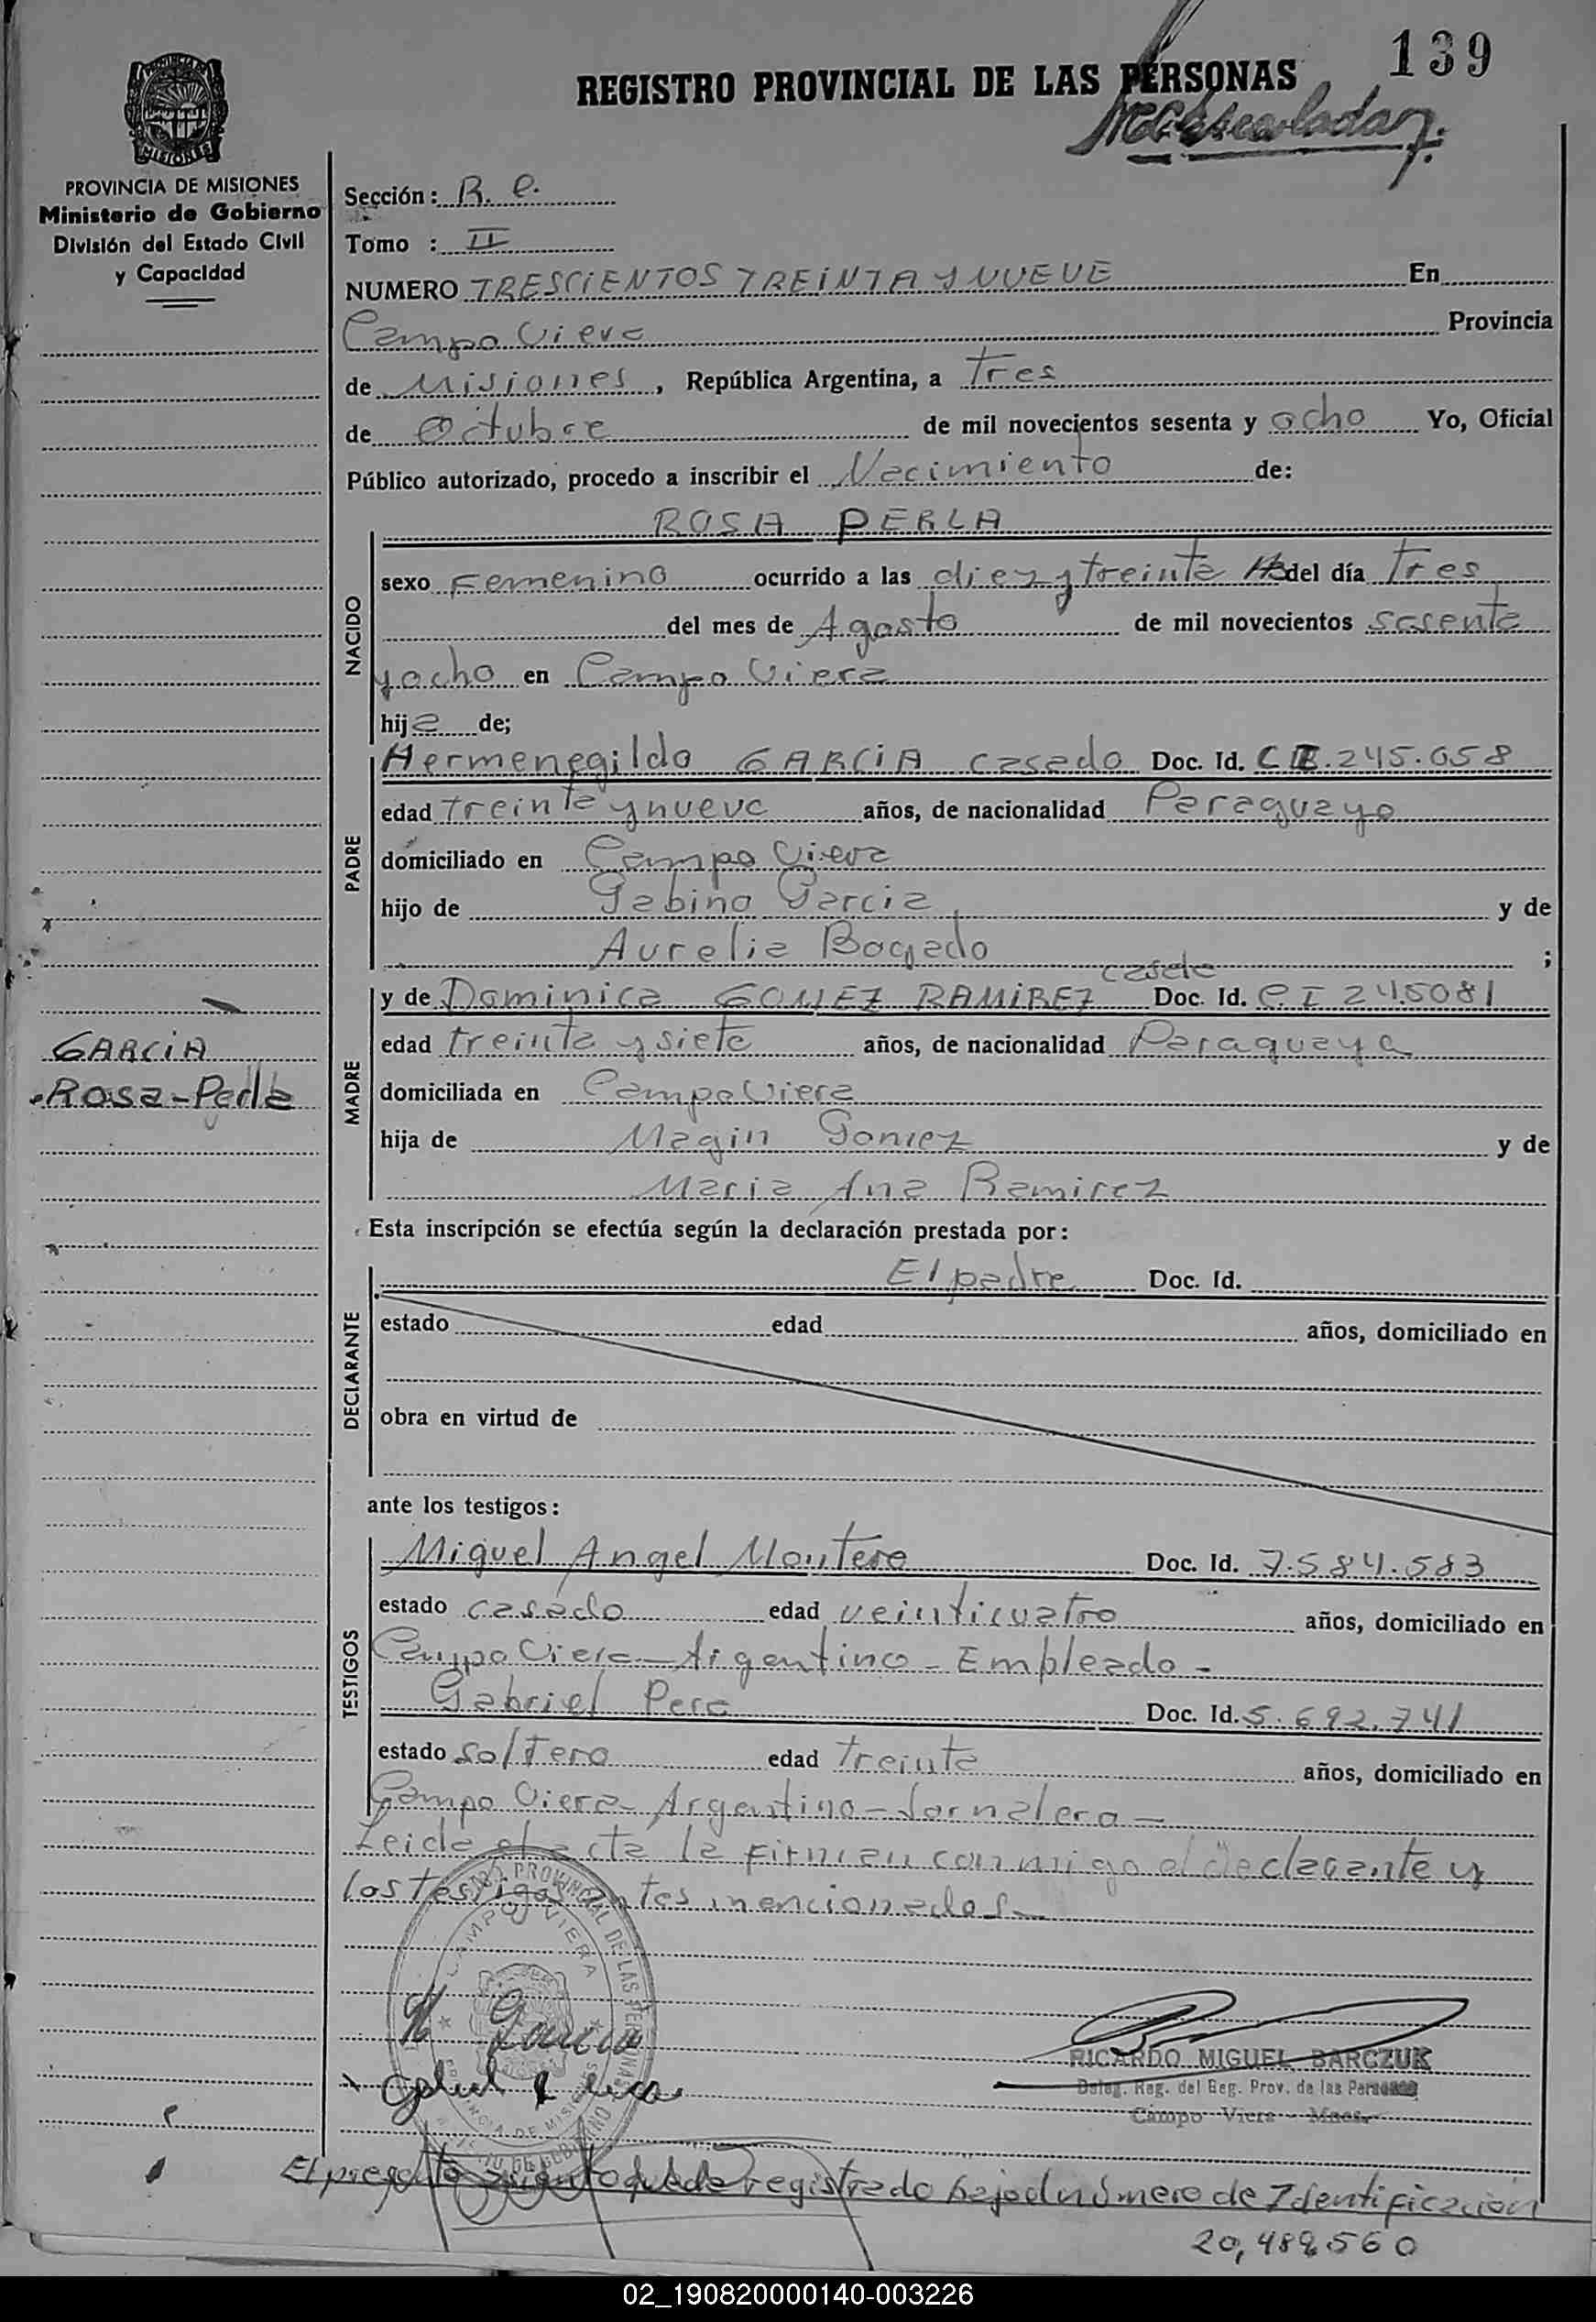 139
REGISTRO PROVINCIAL DE LAS PERSONAS
MISIONES
PROVINCIA DE MISIONES
Ministerio de Gobierno
División del Estado Civil
y Capacidad
Sección: R. e.
Tomo : II
NUMERO TRESCIENTOS TREINTA Y NUEVE En
Campo Viera Provincia
de Misiones, República Argentina, a Tres
de Octubre de mil novecientos sesenta y ocho Yo, Oficial
Público autorizado, procedo a inscribir el Nacimiento de:
NACIDO
ROSA PERLA
sexo Femenino ocurrido a las diez y treinta Hs del día Tres
del mes de Agosto de mil novecientos sesenta
y ocho en Campo Viera
hija de;
PADRE
Hermenegildo GARCIA casado Doc. Id. CI.245.058
edad treinta y nueve años, de nacionalidad Paraguayo
domiciliado en Campo Viera
hijo de Gabino Garcia y de
Aurelia Bogado ;
MADRE
casada
y de Dominica GOMEZ RAMIREZ Doc. Id. C.I 245081
edad treinta y siete años, de nacionalidad Paraguaya
domiciliada en Campo Viera
hija de Magin Gomez y de
Maria Ana Ramirez
GARCIA
Rosa-Perla
Esta inscripción se efectúa según la declaración prestada por:
DECLARANTE
El padre Doc. Id.
estado edad años, domiciliado en
obra en virtud de
ante los testigos:
TESTIGOS
Miguel Angel Montero Doc. Id. 7.584.583
estado casado edad veinticuatro años, domiciliado en
Campo Viera - Argentino - Empleado -
Gabriel Doc. Id. 5.692.741
estado Soltero edad treinta años, domiciliado en
Campo Viera - Argentino - Jornalero -
Leida el acta la firman conmigo el declarante y
los testigos antes mencionados -
CAMPO VIERA
H Garcia
RICARDO MIGUEL BARCZUK
Deleg. Reg. del Reg. Prov. de las Personas
Campo Viera - Mnes.
El presente asiento queda registrado bajo el número de Identificación
20,489560
02_190820000140-003226